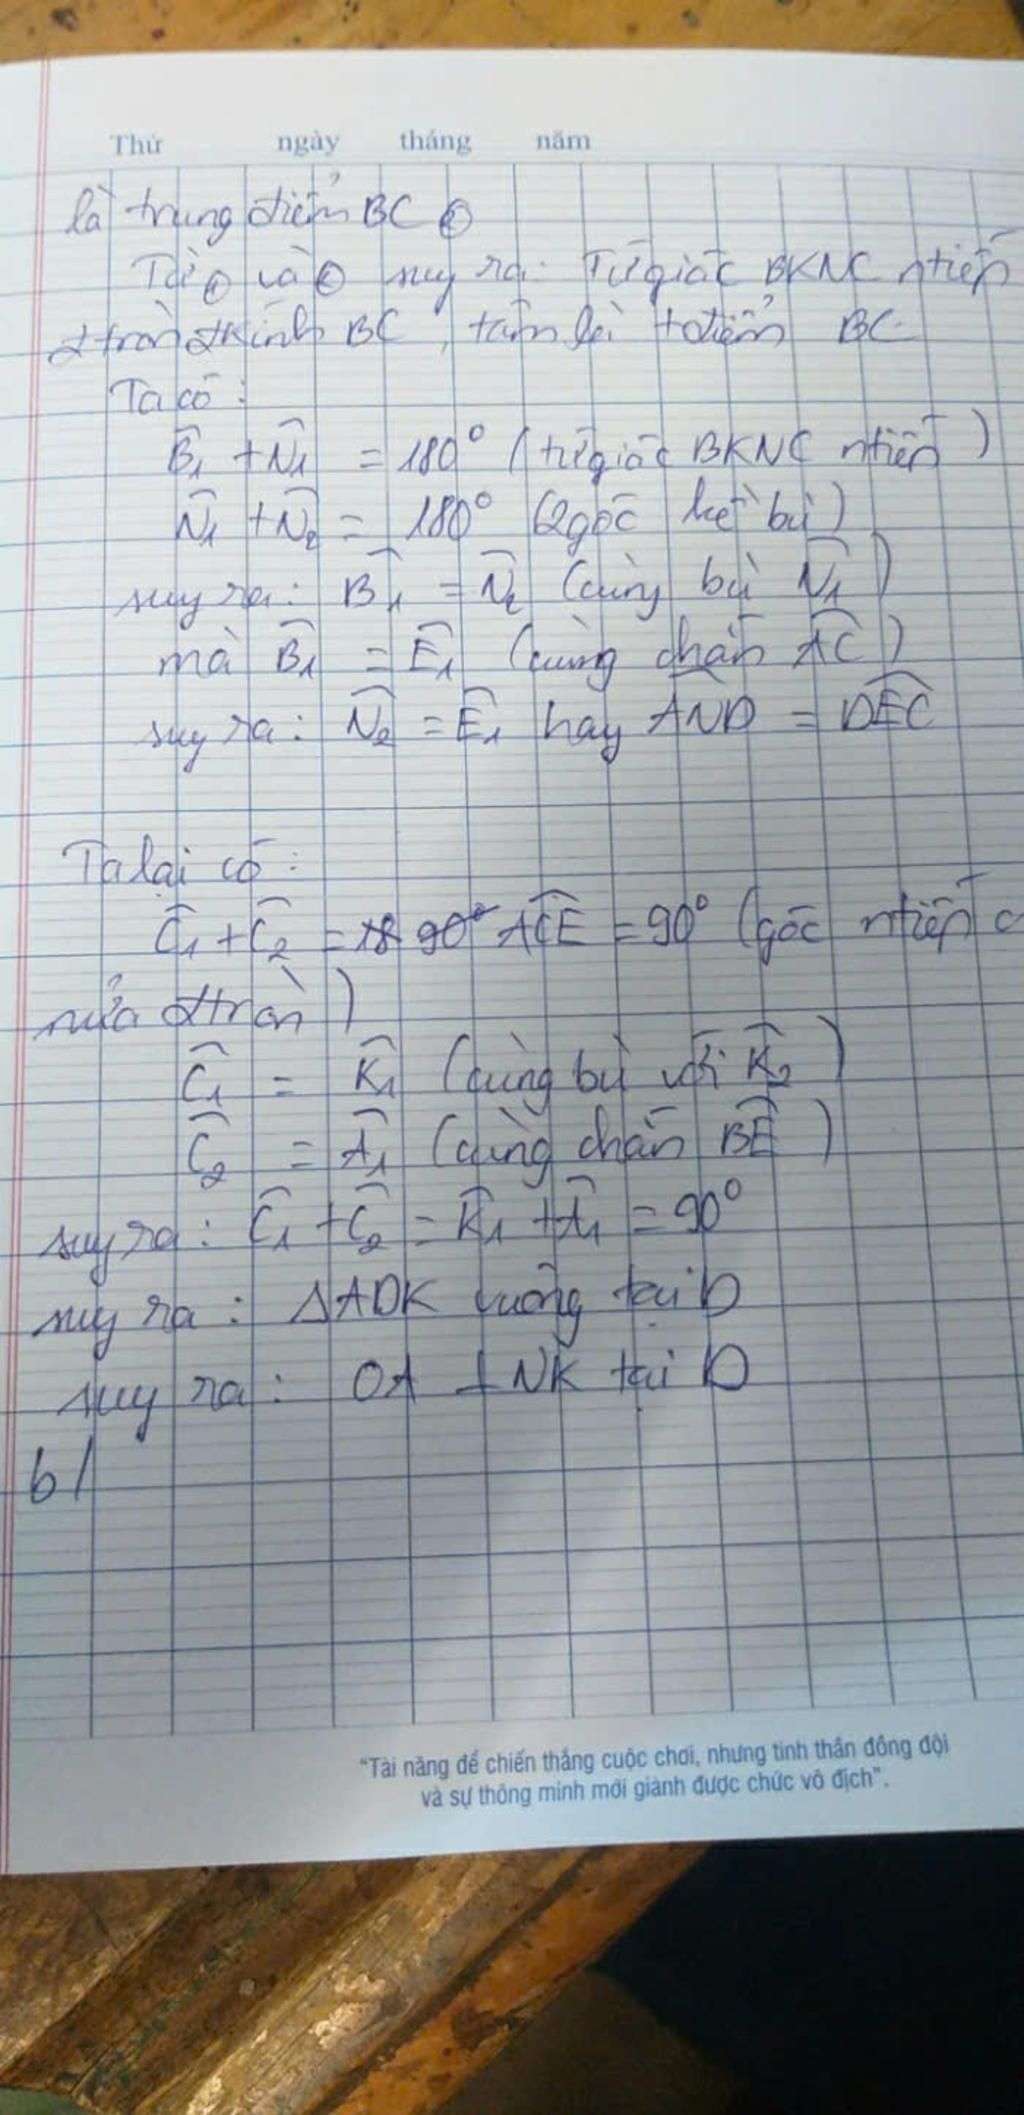 Thứ ngày tháng năm
là trung điểm BC ②
Từ ① và ② suy ra: Tứ giác BKNC ntiếp
đtròn đkính BC, tâm là tđiểm BC
Ta có:
B̂₁ + N̂₁ = 180° (tứ giác BKNC ntiếp)
N̂₁ + N̂₂ = 180° (2 góc kề bù)
suy ra: B̂₁ = N̂₂ (cùng bù N̂₁)
mà B̂₁ = Ê₁ (cùng chắn AC)
suy ra: N̂₂ = Ê₁ hay AND = DEC
Ta lại có:
Ĉ₁ + Ĉ₂ = ACE = 90° (góc ntiếp c
nửa đtròn)
Ĉ₁ = K̂₁ (cùng bù với K̂₂)
Ĉ₂ = Â₁ (cùng chắn BE)
suy ra: Ĉ₁ + Ĉ₂ = K̂₁ + Â₁ = 90°
suy ra: ΔADK vuông tại D
suy ra: OA ⊥ NK tại D
b/
"Tài năng để chiến thắng cuộc chơi, nhưng tinh thần đồng đội
và sự thông minh mới giành được chức vô địch".